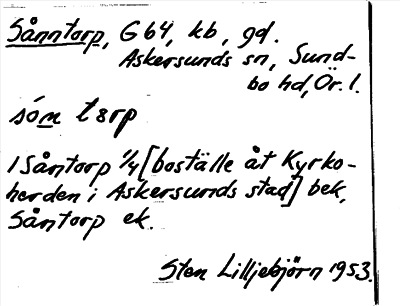 Sånntorp, G 64, kb, gd.
Askersunds sn, Sund-
bo hd, Ör. l.
só̱m tɜrp
1 Såntorp 1/4 [boställe åt Kyrko-
herden i Askersunds stad] bek,
Såntorp ek.
Sten Lilljebjörn 1953.